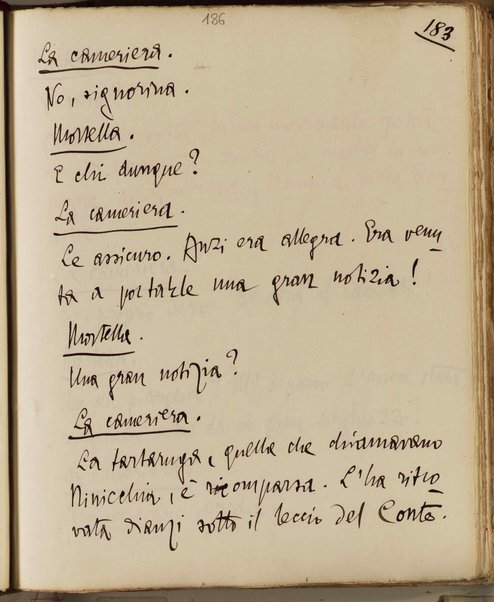 186
183
La cameriera.
No, signorina.
Mortella.
E chi dunque?
La cameriera.
Le assicuro. Anzi era allegra. Era venu
ta a portarle una gran notizia!
Mortella.
Una gran notizia?
La cameriera.
La tartaruga, quella che chiamavano
Ninicchia, è ricomparsa. L'ha ritro
vata dianzi sotto il leccio del Conte.